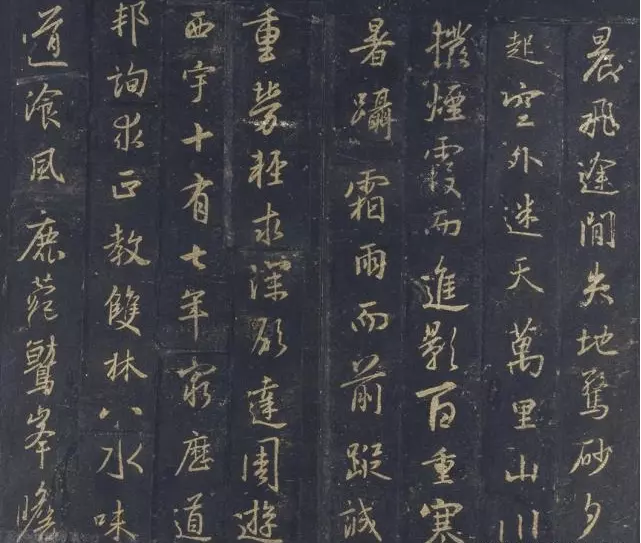 晨飛途間失地驚砂夕
起空外迷天萬里山川
撥煙霞而進影百重寒
暑躡霜雨而前蹤誠
重勞輕求深願達周遊
西宇十有七年窮歷道
邦詢求正教雙林八水味
道湌風鹿菀鷲峯瞻